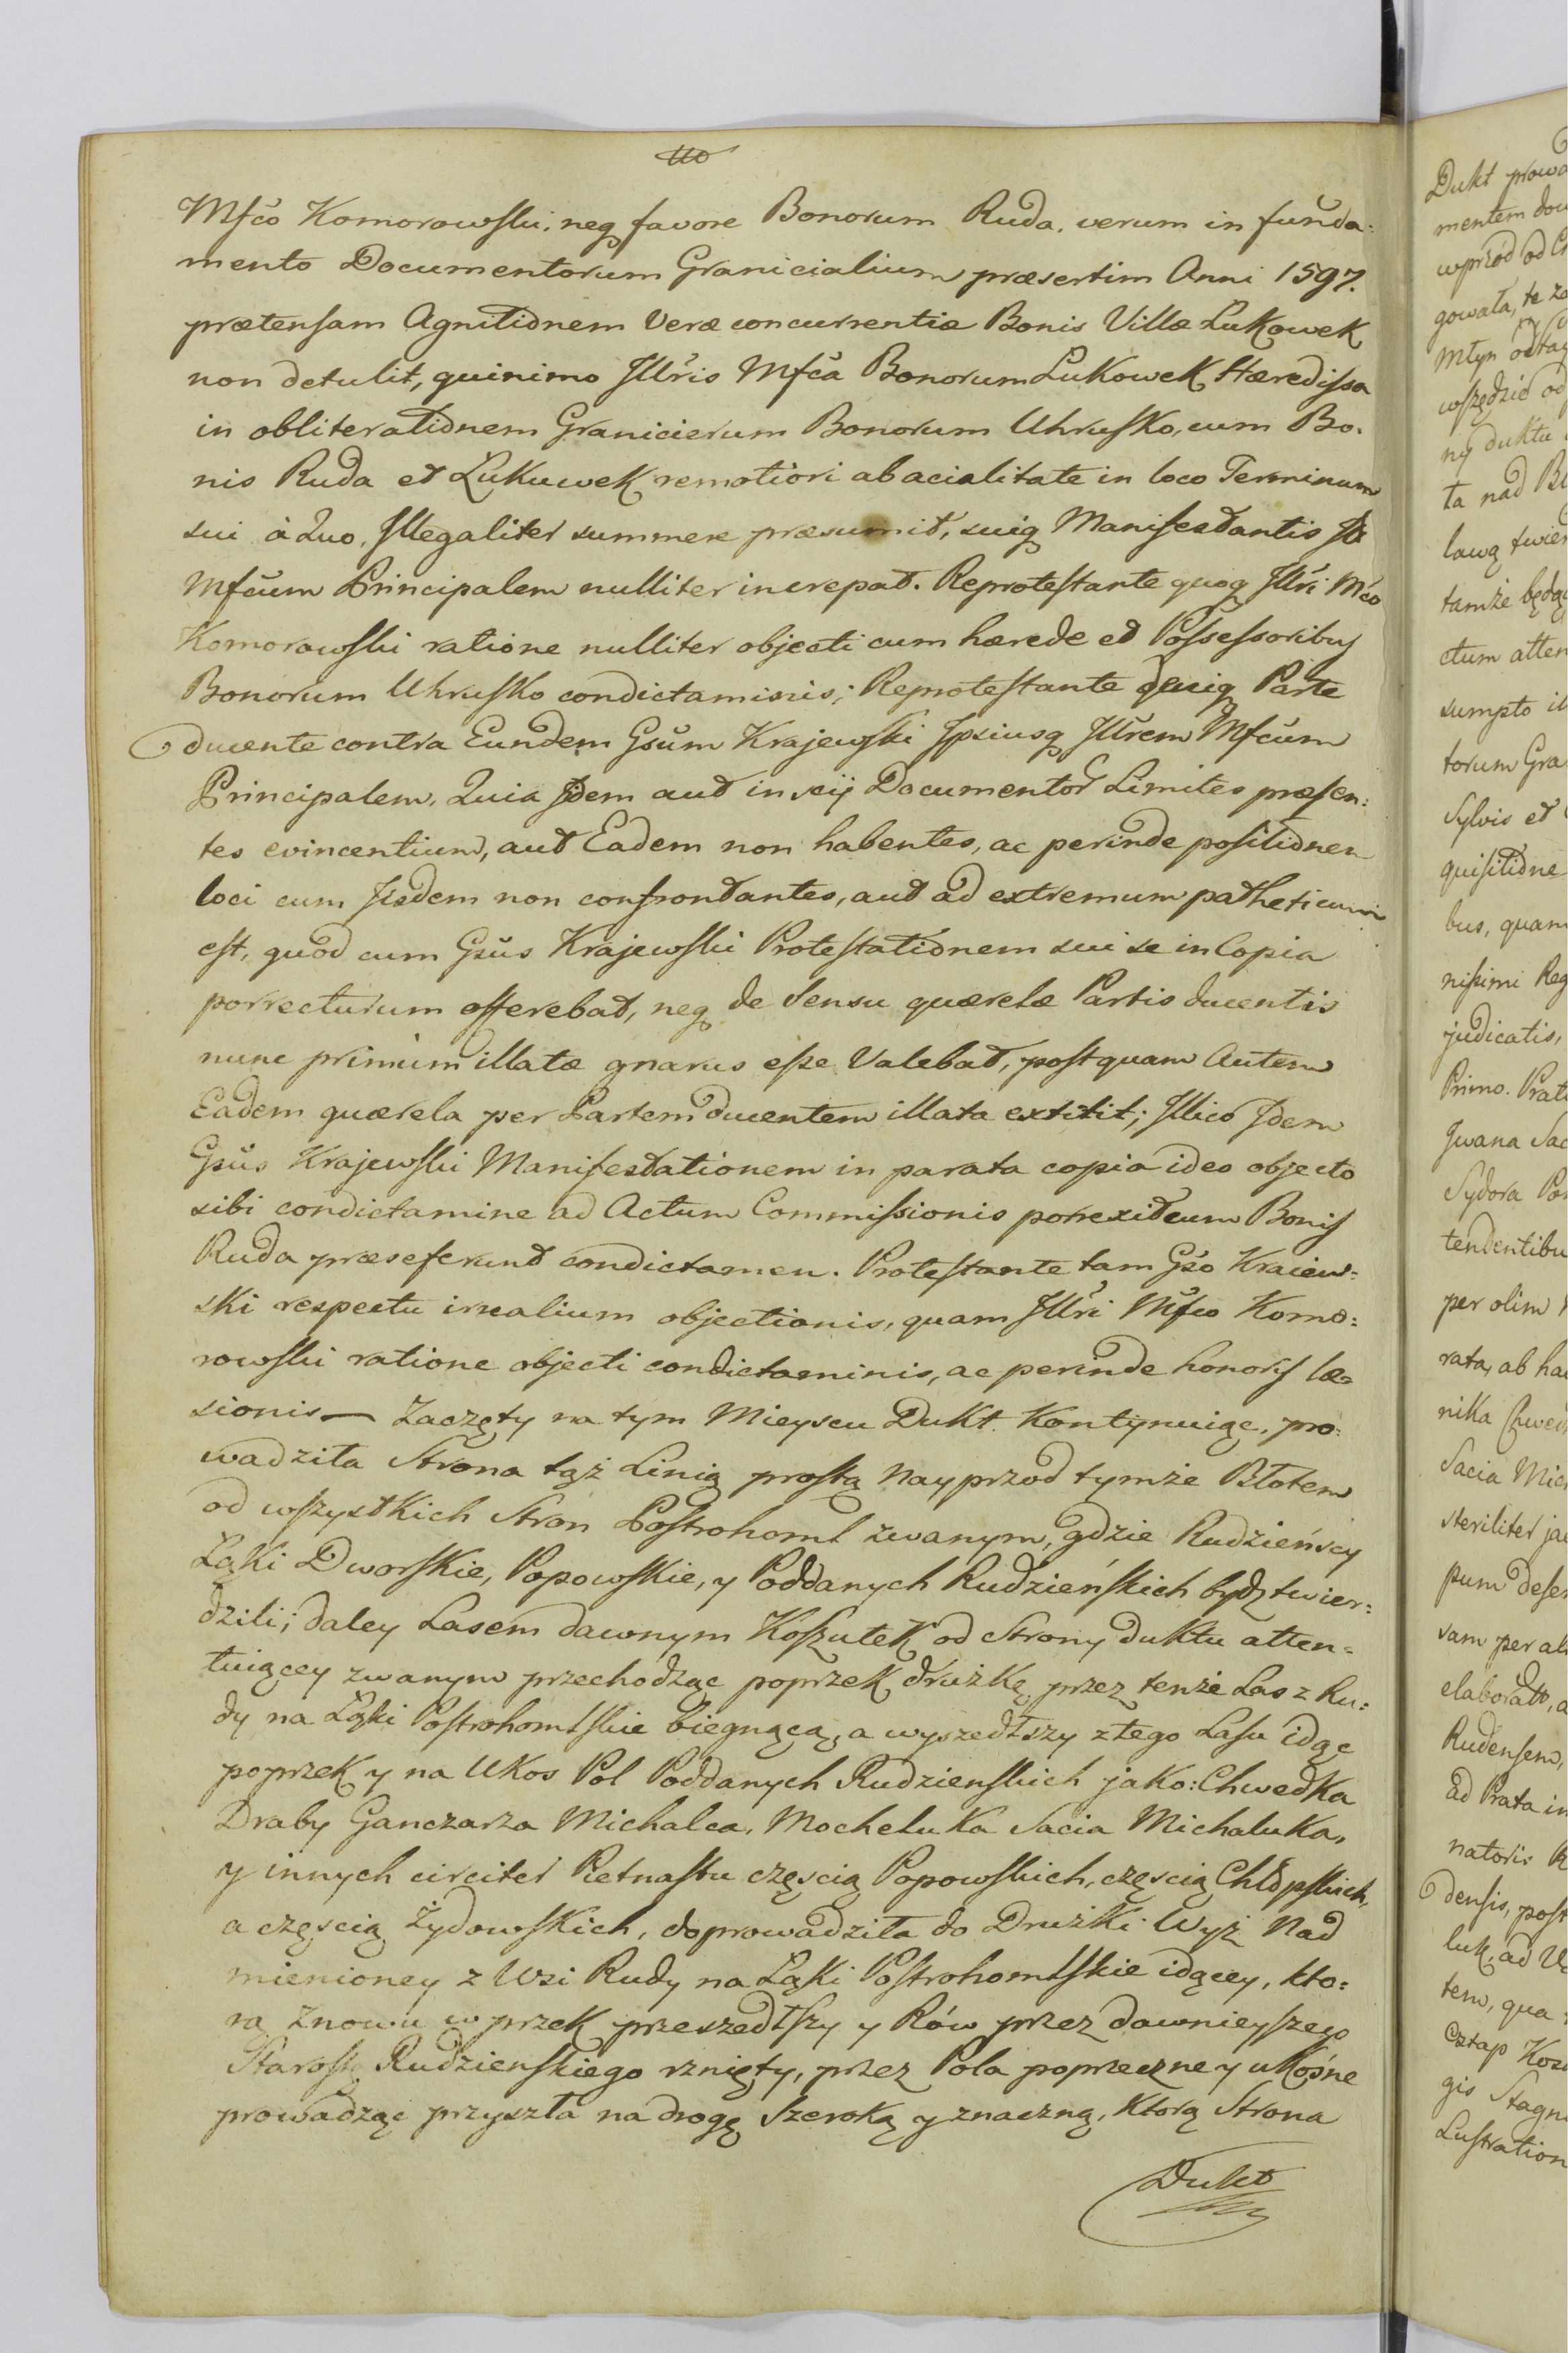 Mfco Komorowski, neq favore Bonorum Ruda, verum in funda=
mento Documentorum Granicialium præsertim Anni 1597.
prætensam Agnitionem Veræ concurrentiæ Bonis Villæ Łukowek
non detulit, quinimo Jllris Mfca Bonorum Łukowek Hæredissa
in obliterationem Granicierum Bonorum Uhrusko, cum Bo=
nis Ruda et Łukuwek remotiori ab acialitate in loco Terminum
sui à Quo, Jllegaliter summere præsumit, suiq Manifestantis
Mfcum Principalem nulliter increpat. Reprotestante quoq Jllri Mfco
Komorowski ratione nulliter objecti cum hærede et Possessoribus
Bonorum Uhrusko condictaminis; Reprotestante deniq Parte
ducente contra Eundem Gsum Krajewski Jpsiusq Jllrem Mfcum
Principalem, Quia Jidem aut inscij Documentor Limites præsen=
tes evincentium, aut Eadem non habentes, ac perinde positionem
loci cum Jisdem non confrontantes, aut ad extremum patheticum
est, quod cum Gsus Krajewski Protestationem sui se in Copia
porrecturum offerebat, neq de Sensu quærelæ Partis ducentis
nunc primum illatæ gnarus esse Valebat, postquam Autem
Eadem quærela per Partem ducentem illata extitit; Jllico Jdem
Gsus Krajewski Manifestationem in parata copia ideo objecto
sibi condictamine ad Actum Commissionis porrexit cum Bonis
Ruda præseferunt condictamen. Protestante tam Gso Kraiew=
ski respectu irrealium objectionis, quam Jllri Mfco Komo=
rowski ratione objecti condictaminis, ac perinde honoris læ=
sionis — Zaczęty na tym Mieyscu Dukt Kontynuiąc, pro=
wadziła Strona tąż Linią prostą Nayprzod tymże Błotem
od wszystkich Stron Postrohoml zwanym, gdzie Rudzieńscy
Łąki Dworskie, Popowskie, y Poddanych Rudzieńskich bydz twier=
dzili; daley Lasem dawnym Koszutek od Strony duktu atten=
tuiącey zwanym przechodząc poprzek drużkę przez tenże Las z Ru=
dy na Łąki Postrohomlskie biegnącą, a wyszedłszy z tego Lasu idąc
poprzek y na Ukos Pol Poddanych Rudzienskich jako: Chwedka
Draby Ganczarza Michalca, Mocheluka Sacia Michaluka,
y innych circiter Pietnastu częscią Popowskich, częscią Chłopskich,
a częscią Żydowskich, doprowadziła do Drużki Wyż Nad
mienioney z Wsi Rudy na Łąki Postrohomlskie idącey, kto=
rą Znowu w przek przeszedłszy y Rów przez dawnieyszego
Starostę Rudzienskiego rznięty, przez Pola poprzeczne y ukośne
prowadząc przyszła na drogę Szeroką y znaczną, Ktorą Strona
Dukt
Dukt prowa
mentem
wprzód od
gowała, te
Młyn
wszędzie od
ny duktu
ta nad
lawą twier
tamże będąc
ctum atten
sumpto
torum Gra
Sylvis et
quisitione
bus, quam
nissimi Reg
judicatis,
Primo. Prati
Jwana Sac
Sydora
tendentibu
per olim
rata, ab
nika Chwed
Sacia Mich
steriliter
pum
sam per
elaborato,
Rudensem,
ad Prata in
natoris
densis, post
luk, ad
tem, qua
Ostap
gis Stagn
Lustration